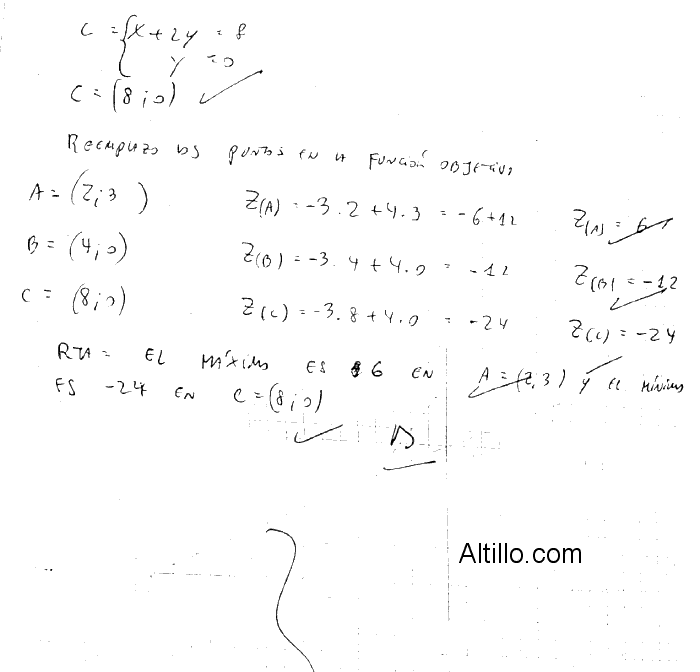 C = { x + 2y = 8
y = 0
C = (8;0)
REEMPLAZO LOS PUNTOS EN LA FUNCIÓN OBJETIVO
A = (2;3) Z(A) = -3.2 + 4.3 = -6+12 Z(A) = 6
B = (4;0) Z(B) = -3.4 + 4.0 = -12 Z(B) = -12
C = (8;0) Z(C) = -3.8 + 4.0 = -24 Z(C) = -24
RTA = EL MÁXIMO ES 6 EN A = (2,3) Y EL MÍNIMO
ES -24 EN C = (8;0)
Altillo.com